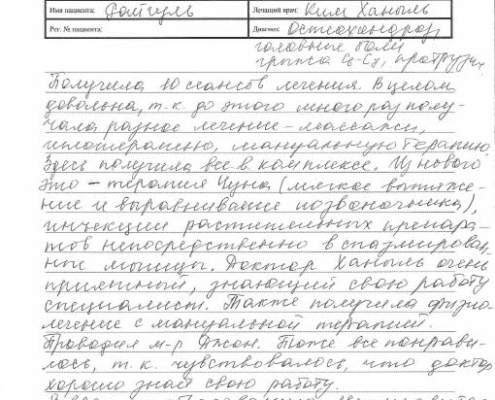 Имя пациента: Райгуль Лечащий врач: Ким Ханыль
Рег. № пациента: Диагноз: Остеохондроз,
головные боли
грыжа протрузии
Получила 10 сеансов лечения. В целом
довольна, т.к. до этого много раз полу-
чала разное лечение - массажи,
иглотерапию, мануальную терапию.
Здесь получила все в комплексе. Из нового
это - терапия Чуна (мягкое вытяже-
ние и выравнивание позвоночника),
инъекции растительных препара-
тов непосредственно в спазмирован-
ные мышцы. Доктор Ханыль очень
приятный, знающий свою работу
специалист. Также получила физио-
лечение с мануальной терапией.
Проводил м-р Джон. Тоже все понрави-
лось, т.к. чувствовалось, что доктор
хорошо знает свою работу.